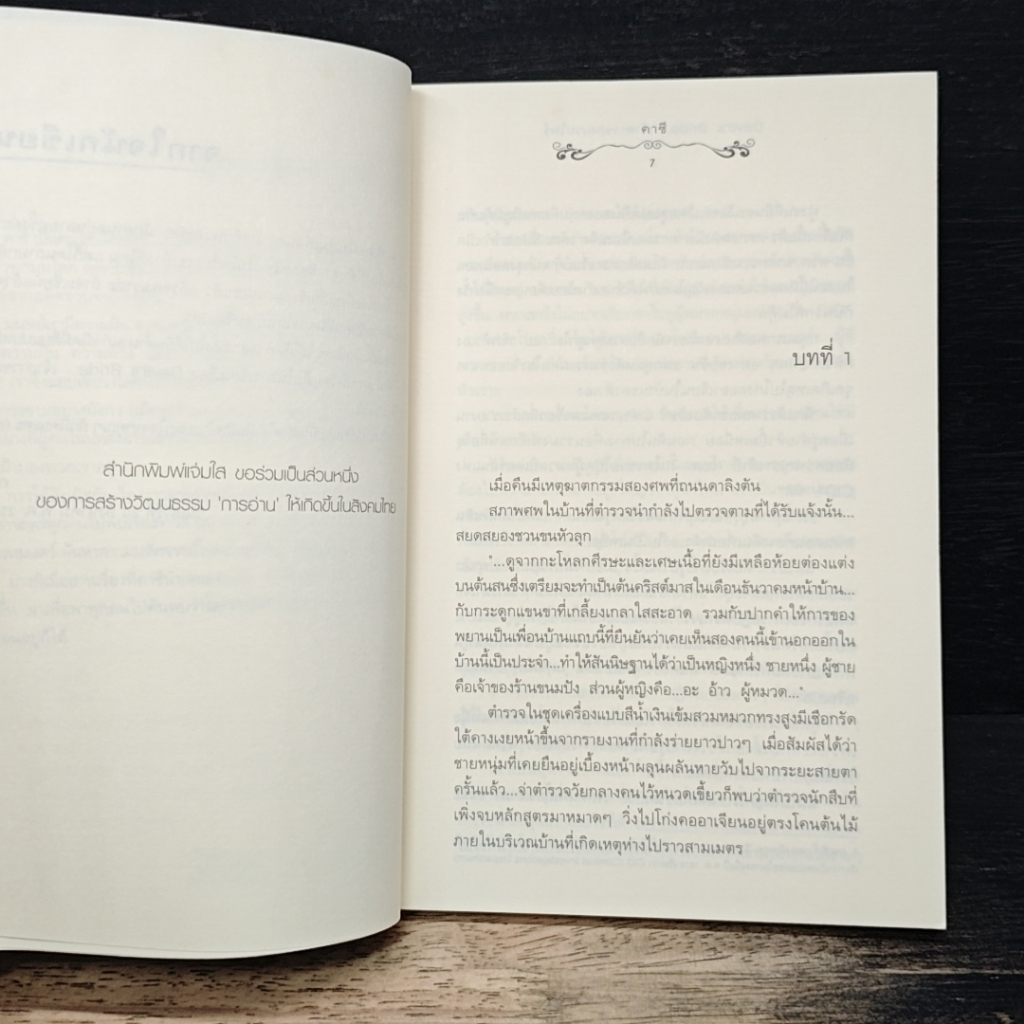 สำนักพิมพ์แจ่มใส ขอร่วมเป็นส่วนหนึ่ง
ของการสร้างวัฒนธรรม 'การอ่าน' ให้เกิดขึ้นในสังคมไทย
คาซึ
7
บทที่ 1
เมื่อคืนมีเหตุฆาตกรรมสองศพที่ถนนดาลิงตัน
สภาพศพในบ้านที่ตำรวจนำกำลังไปตรวจตามที่ได้รับแจ้งนั้น...
สยดสยองชวนขนหัวลุก
'...ดูจากกะโหลกศีรษะและเศษเนื้อที่ยังมีเหลือห้อยต่องแต่ง
บนต้นสนซึ่งเตรียมจะทำเป็นต้นคริสต์มาสในเดือนธันวาคมหน้าบ้าน...
กับกระดูกแขนขาที่เกลี้ยงเกลาใสสะอาด รวมกับปากคำให้การของ
พยานเป็นเพื่อนบ้านแถบนี้ที่ยืนยันว่าเคยเห็นสองคนนี้เข้านอกออกใน
บ้านนี้เป็นประจำ...ทำให้สันนิษฐานได้ว่าเป็นหญิงหนึ่ง ชายหนึ่ง ผู้ชาย
คือเจ้าของร้านขนมปัง ส่วนผู้หญิงคือ...อะ อ้าว ผู้หมวด...'
ตำรวจในชุดเครื่องแบบสีน้ำเงินเข้มสวมหมวกทรงสูงมีเชือกรัด
ใต้คางเงยหน้าขึ้นจากรายงานที่กำลังร่ายยาวปาวๆ เมื่อสัมผัสได้ว่า
ชายหนุ่มที่เคยยืนอยู่เบื้องหน้าผลุนผลันหายวับไปจากระยะสายตา
ครั้นแล้ว...จ่าตำรวจวัยกลางคนไว้หนวดเขี้ยวก็พบว่าตำรวจนักสืบที่
เพิ่งจบหลักสูตรมาหมาดๆ วิ่งไปโก่งคออาเจียนอยู่ตรงโคนต้นไม้
ภายในบริเวณบ้านที่เกิดเหตุห่างไปราวสามเมตร